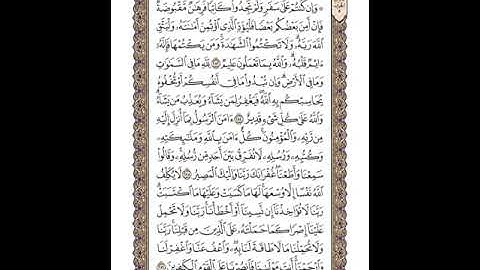 ۞ وَإِن كُنتُمْ عَلَىٰ سَفَرٍ وَلَمْ تَجِدُوا۟ كَاتِبًا فَرِهَٰنٌ مَّقْبُوضَةٌ
فَإِنْ أَمِنَ بَعْضُكُم بَعْضًا فَلْيُؤَدِّ ٱلَّذِى ٱؤْتُمِنَ أَمَٰنَتَهُۥ وَلْيَتَّقِ
ٱللَّهَ رَبَّهُۥ وَلَا تَكْتُمُوا۟ ٱلشَّهَٰدَةَ وَمَن يَكْتُمْهَا فَإِنَّهُۥٓ
ءَاثِمٌ قَلْبُهُۥ وَٱللَّهُ بِمَا تَعْمَلُونَ عَلِيمٌ ٢٨٣ لِّلَّهِ مَا فِى ٱلسَّمَٰوَٰتِ
وَمَا فِى ٱلْأَرْضِ وَإِن تُبْدُوا۟ مَا فِىٓ أَنفُسِكُمْ أَوْ تُخْفُوهُ
يُحَاسِبْكُم بِهِ ٱللَّهُ فَيَغْفِرُ لِمَن يَشَآءُ وَيُعَذِّبُ مَن يَشَآءُ
وَٱللَّهُ عَلَىٰ كُلِّ شَىْءٍ قَدِيرٌ ٢٨٤ ءَامَنَ ٱلرَّسُولُ بِمَآ أُنزِلَ إِلَيْهِ
مِن رَّبِّهِۦ وَٱلْمُؤْمِنُونَ كُلٌّ ءَامَنَ بِٱللَّهِ وَمَلَٰٓئِكَتِهِۦ
وَكُتُبِهِۦ وَرُسُلِهِۦ لَا نُفَرِّقُ بَيْنَ أَحَدٍ مِّن رُّسُلِهِۦ وَقَالُوا۟
سَمِعْنَا وَأَطَعْنَا غُفْرَانَكَ رَبَّنَا وَإِلَيْكَ ٱلْمَصِيرُ ٢٨٥ لَا يُكَلِّفُ
ٱللَّهُ نَفْسًا إِلَّا وُسْعَهَا لَهَا مَا كَسَبَتْ وَعَلَيْهَا مَا ٱكْتَسَبَتْ
رَبَّنَا لَا تُؤَاخِذْنَآ إِن نَّسِينَآ أَوْ أَخْطَأْنَا رَبَّنَا وَلَا تَحْمِلْ
عَلَيْنَآ إِصْرًا كَمَا حَمَلْتَهُۥ عَلَى ٱلَّذِينَ مِن قَبْلِنَا رَبَّنَا
وَلَا تُحَمِّلْنَا مَا لَا طَاقَةَ لَنَا بِهِۦ وَٱعْفُ عَنَّا وَٱغْفِرْ لَنَا
وَٱرْحَمْنَآ أَنتَ مَوْلَىٰنَا فَٱنصُرْنَا عَلَى ٱلْقَوْمِ ٱلْكَٰفِرِينَ ٢٨٦